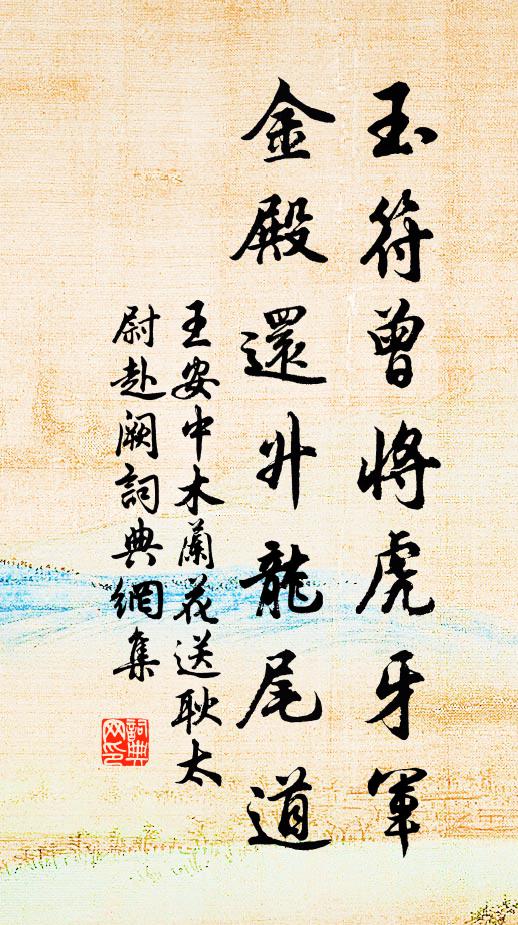 玉符曾將虎牙軍
金殿還升龍尾道
王安中木蘭花送耿太
尉赴闕詞典網集
詞典
网印